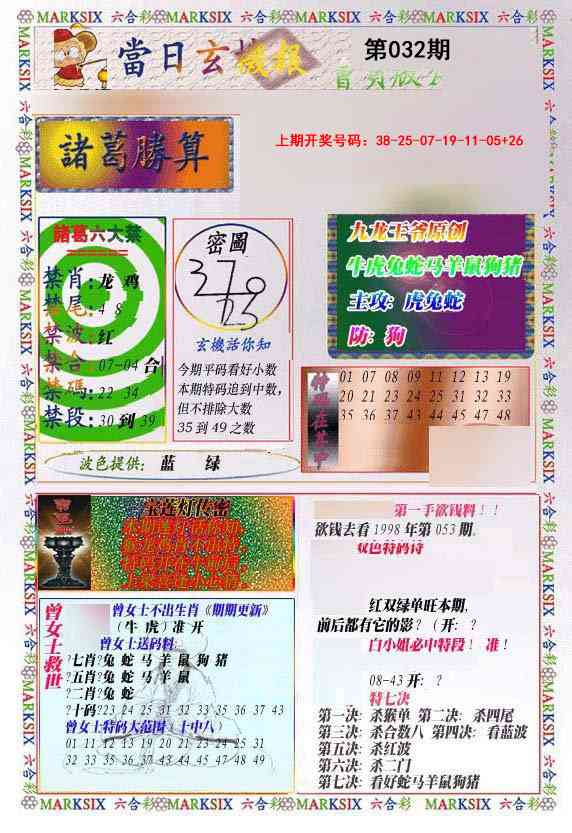 MARKSIX 六合彩 MARKSIX 六合彩 MARKSIX 六合彩 MARKSIX 六合彩
當日玄機報
第032期
上期开奖号码：38-25-07-19-11-05+26
諸葛勝算
諸葛六大禁
禁肖：龙 鸡
禁尾：4 8
禁波：红
禁合：07-04 合
禁碼：22 34
禁段：30 到 39
密圖
玄機話你知
今期平码看好小数
本期特码追到中数，
但不排除大数
35 到 49 之数
九龙王爷原创
牛虎兔蛇马羊鼠狗猪
主攻：虎兔蛇
防：狗
01 07 08 09 11 12 13 19
20 21 23 24 25 31 32 33
35 36 37 43 44 45 47 48
波色提供： 蓝 绿
宝莲灯传密
曾女士救世
曾女士不出生肖《期期更新》
（牛 虎）准 开
曾女士送码料
?七肖?兔 蛇 马 羊 鼠 狗 猪
?五肖?兔 蛇 马 羊 鼠
?二肖?兔 蛇
?十码?23 24 25 31 32 33 35 36 37 43
曾女士特码大范围（十中八）
01 11 12 13 19 20 21 23 24 25 31
32 33 35 36 37 43 44 45 47 48 49
第一手欲钱料！！
欲钱去看 1998 年第 053 期。
双色特码诗
红双绿单旺本期，
前后都有它的影？（开：？
白小姐必中特段！ 准！
08-43 开：？
特七决
第一决：杀猴单 第二决：杀四尾
第三决：杀合数八 第四决：看蓝波
第五决：杀红波
第六决：杀二门
第七决：看好蛇马羊鼠狗猪
MARKSIX 六合彩 MARKSIX 六合彩 MARKSIX 六合彩 MARKSIX 六合彩